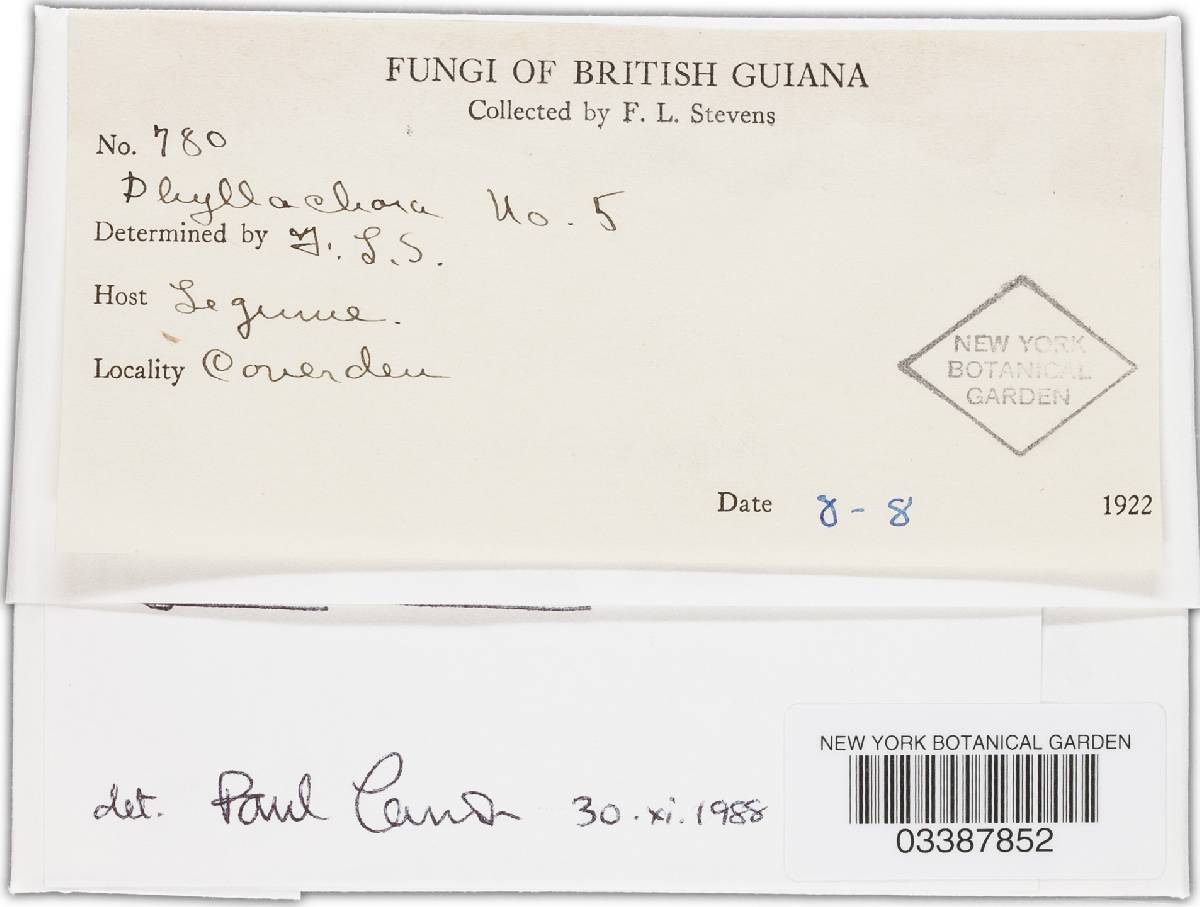 FUNGI OF BRITISH GUIANA
Collected by F. L. Stevens
No. 780
Phyllachora No. 5
Determined by F. L. S.
Host Legume.
Locality Coverden
NEW YORK
BOTANICAL
GARDEN
Date 8 - 8 1922
det. Paul Cannon 30.xi.1988
NEW YORK BOTANICAL GARDEN
03387852